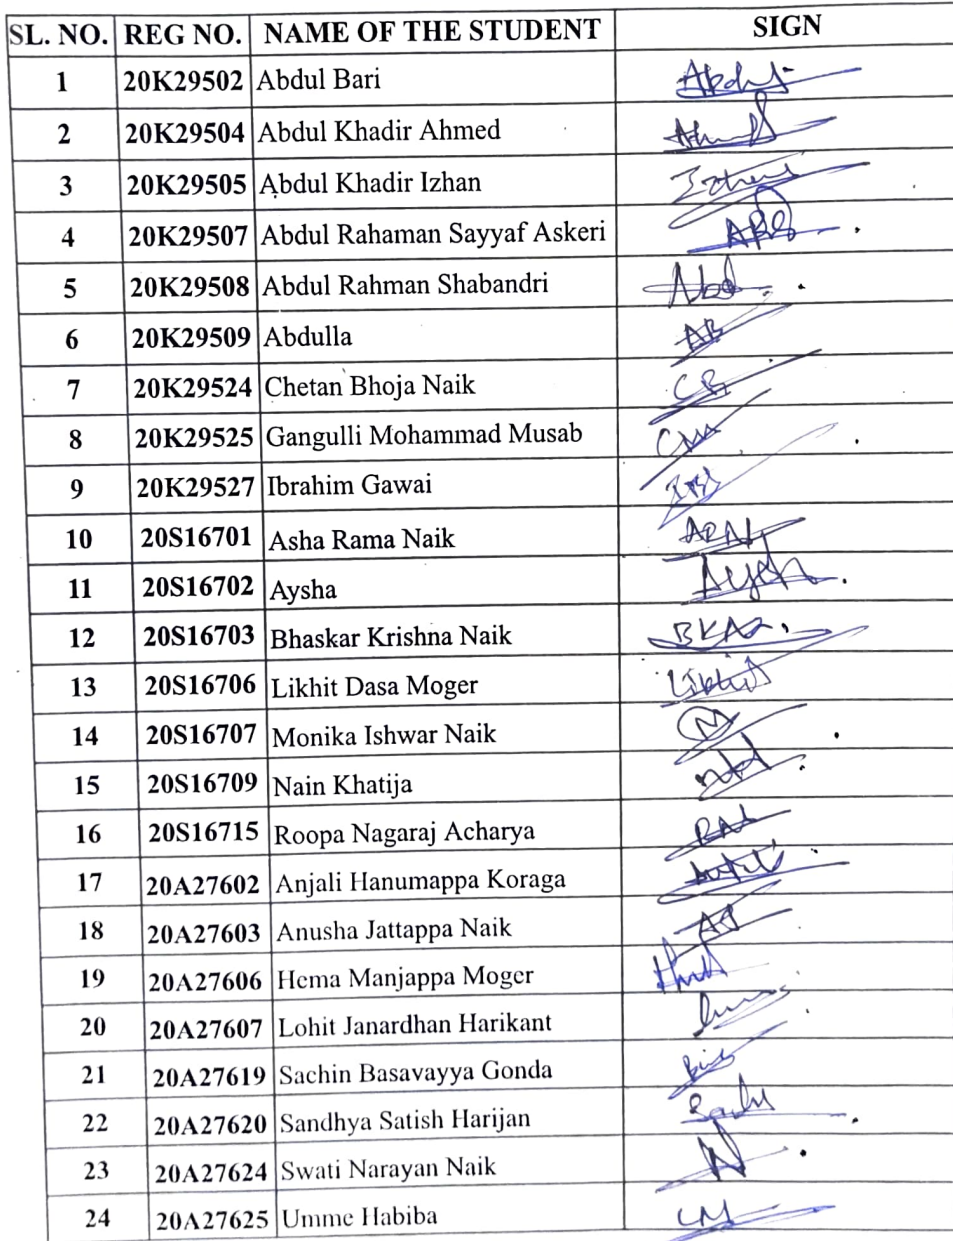 SL. NO. REG NO. NAME OF THE STUDENT SIGN
1 20K29502 Abdul Bari
2 20K29504 Abdul Khadir Ahmed
3 20K29505 Abdul Khadir Izhan
4 20K29507 Abdul Rahaman Sayyaf Askeri
5 20K29508 Abdul Rahman Shabandri
6 20K29509 Abdulla AB
7 20K29524 Chetan Bhoja Naik
8 20K29525 Gangulli Mohammad Musab
9 20K29527 Ibrahim Gawai
10 20S16701 Asha Rama Naik
11 20S16702 Aysha
12 20S16703 Bhaskar Krishna Naik
13 20S16706 Likhit Dasa Moger Likhit
14 20S16707 Monika Ishwar Naik
15 20S16709 Nain Khatija
16 20S16715 Roopa Nagaraj Acharya
17 20A27602 Anjali Hanumappa Koraga
18 20A27603 Anusha Jattappa Naik
19 20A27606 Hema Manjappa Moger
20 20A27607 Lohit Janardhan Harikant
21 20A27619 Sachin Basavayya Gonda
22 20A27620 Sandhya Satish Harijan
23 20A27624 Swati Narayan Naik
24 20A27625 Umme Habiba